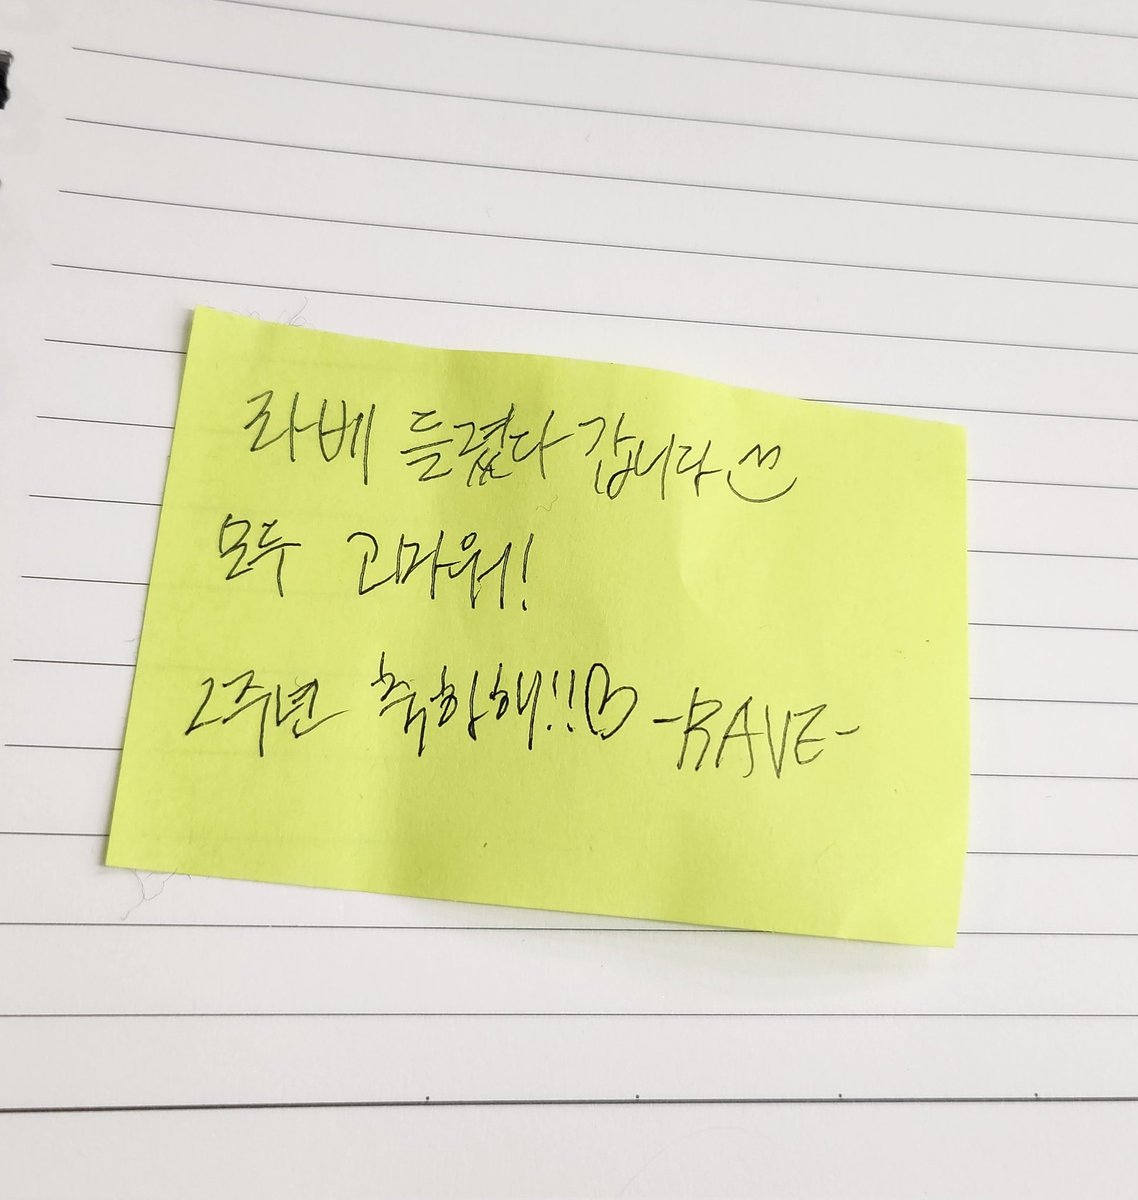 라베 들렸다 갑니다
모두 고마워!
2주년 축하해!!♡ -RAVE-